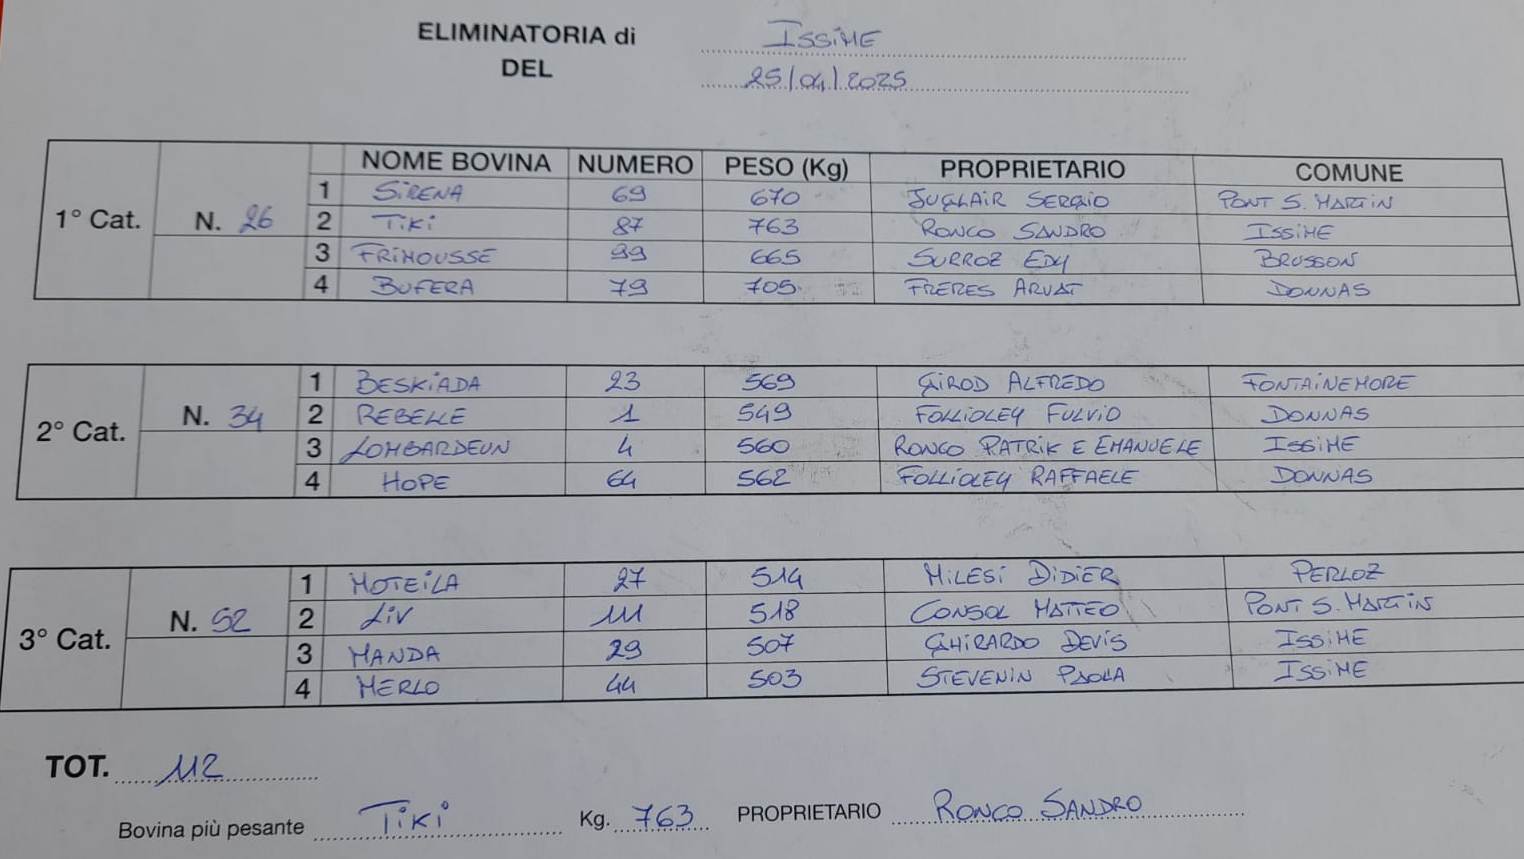 ELIMINATORIA di ISSIME
DEL 25/04/2025
NOME BOVINA NUMERO PESO (Kg) PROPRIETARIO COMUNE
1 SIRENA 69 670 JUGLAIR SERGIO PONT S. MARTIN
1° Cat. N. 26 2 TIKI 87 763 RONCO SANDRO ISSIME
3 FRIMOUSSE 99 665 SURROZ EDY BRUSSON
4 BUFERA 79 705 FRERES ARVAT DONNAS
1 BESKIADA 23 569 GIROD ALFREDO FONTAINEMORE
2° Cat. N. 34 2 REBELLE 1 549 FOLLIOLEY FULVIO DONNAS
3 LOMBARDEUN 4 560 RONCO PATRIK E EMANUELE ISSIME
4 HOPE 64 562 FOLLIOLEY RAFFAELE DONNAS
1 MOTEILA 27 514 MILESI DIDIER PERLOZ
3° Cat. N. 52 2 LIV 111 518 CONSOL MATTEO PONT S. MARTIN
3 MANDA 29 507 GHIRARDO DEVIS ISSIME
4 MERLO 44 503 STEVENIN PAOLA ISSIME
TOT. 112
Bovina più pesante TIKI Kg. 763 PROPRIETARIO RONCO SANDRO